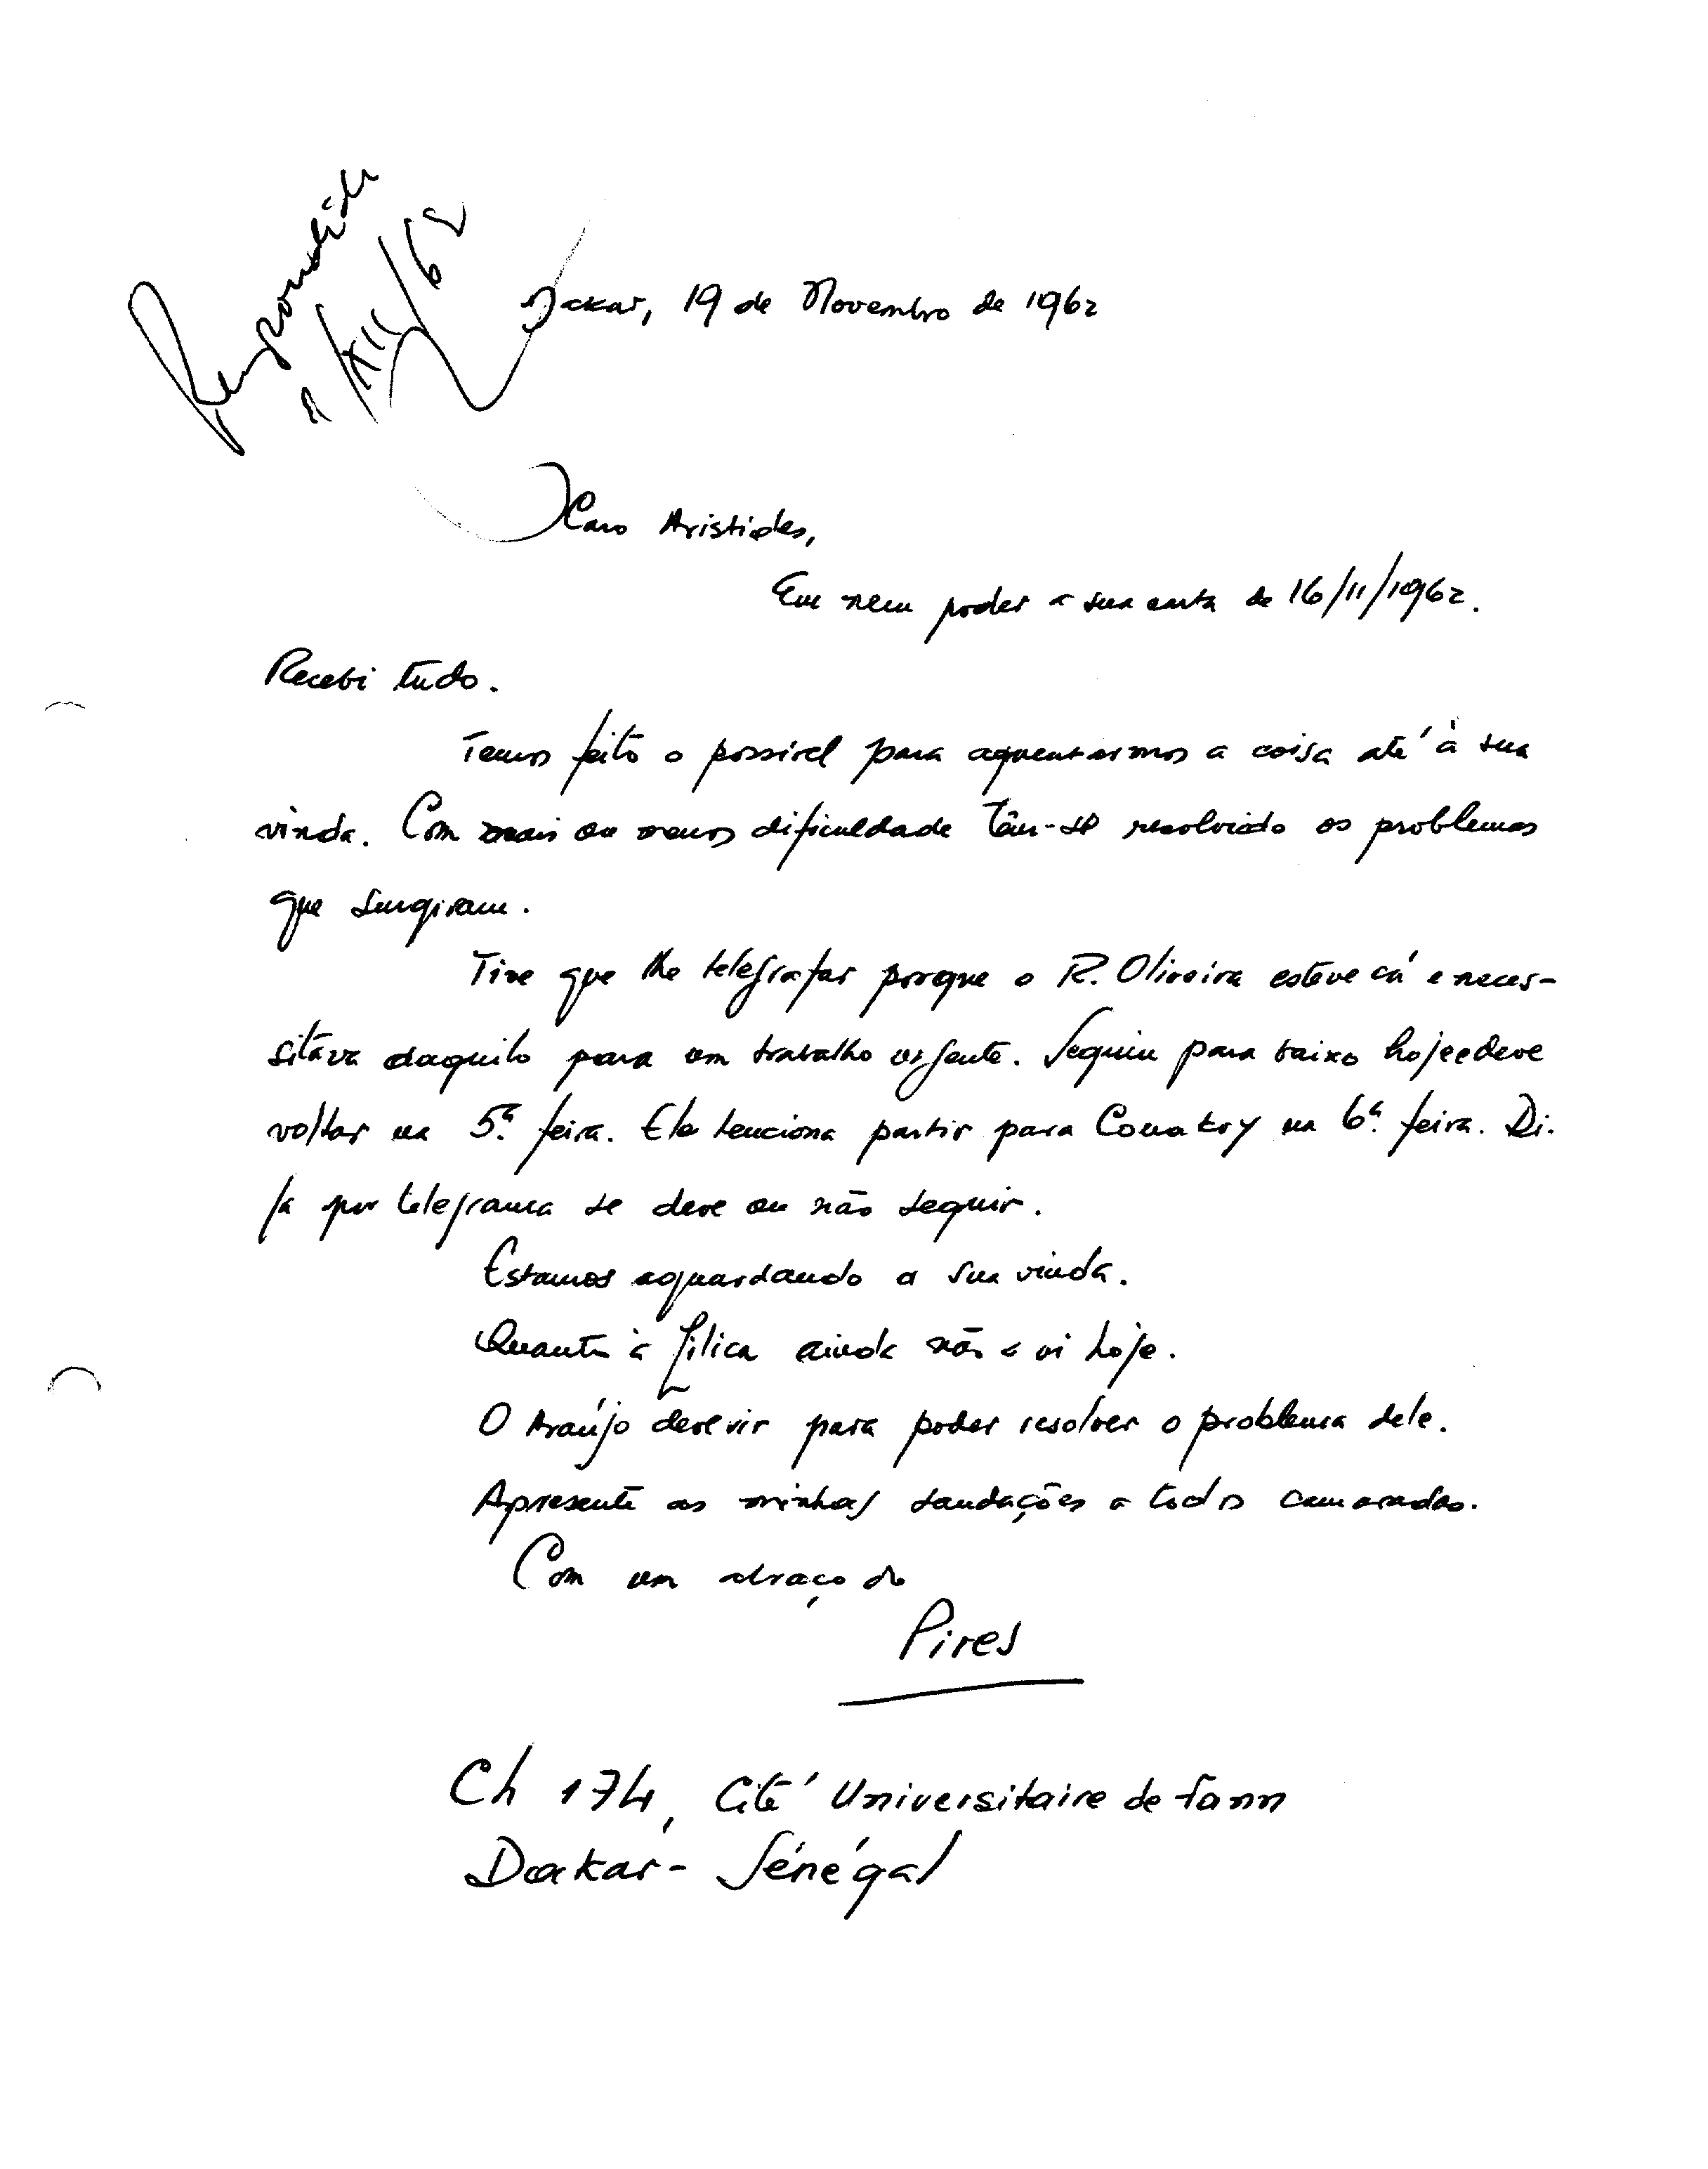 Respondida
/XII/62
Dakar, 19 de Novembro de 1962
Caro Aristides,
Em meu poder a sua carta de 16/11/1962.
Recebi tudo.
Temos feito o possível para aguentarmos a coisa até à sua
vinda. Com mais ou menos dificuldade têm-se resolvido os problemas
que surgiram.
Tive que lhe telegrafar porque o R. Oliveira esteve cá e neces-
sitava daquilo para um trabalho urgente. Seguiu para baixo hoje e deve
voltar na 5ª. feira. Ele tenciona partir para Conakry na 6ª. feira. Di-
ga por telegrama se deve ou não seguir.
Estamos aguardando a sua vinda.
Quanto à Lilica ainda não a vi hoje.
O Araújo deve vir para poder resolver o problema dele.
Apresente as minhas saudações a todos camaradas.
Com um abraço do
Pires
Ch 174, Cité Universitaire de Fann
Dakar- Sénégal